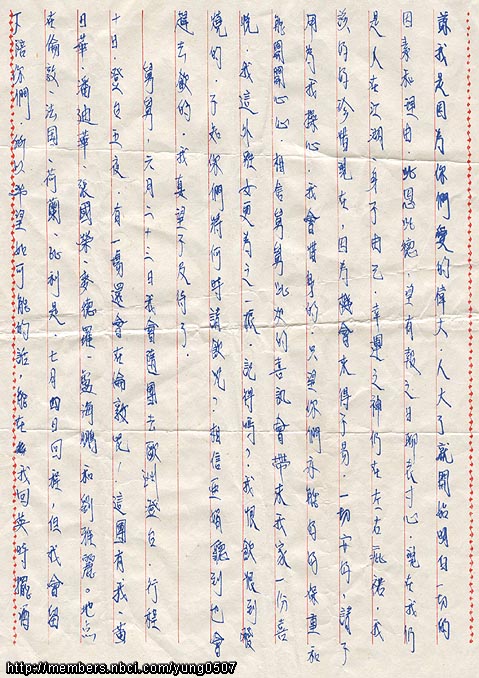 我是因為你們愛的偉大，人大了就開始明白一切的
因素和理由，此恩此德，望有報之日聊表寸心，現在我們
是人在江湖，身不由己，幸運之神仍在左右庇祐，我
該好好珍惜現在，因為機會來得不易，一切安好，請不
用為我操心，我會惜身的，只望你們亦能好好保重和
能開開心心，相信舅舅此次的喜訊會帶來我家一份喜
悅，我這外姪女更為之一振，說得嗎？我恨飲恨到發
燒的，不知你們將何時請飲呢？相信亞娟聽到也會
趕去飲的，我真望不及待了。
舅舅，六月二十三日我會隨團去歐洲登台，行程
十日，登台五夜，有一場還會在倫敦呢！這團有我、黃
日華、潘迪華、張國榮、麥德羅、盧海鵬和劉雅麗。地點
在倫敦、法國、荷蘭、比利是，七月四日回程，但我會留
下陪你們，所以希望如可能的話，能在我回英時擺酒
http://members.nbci.com/yung0507